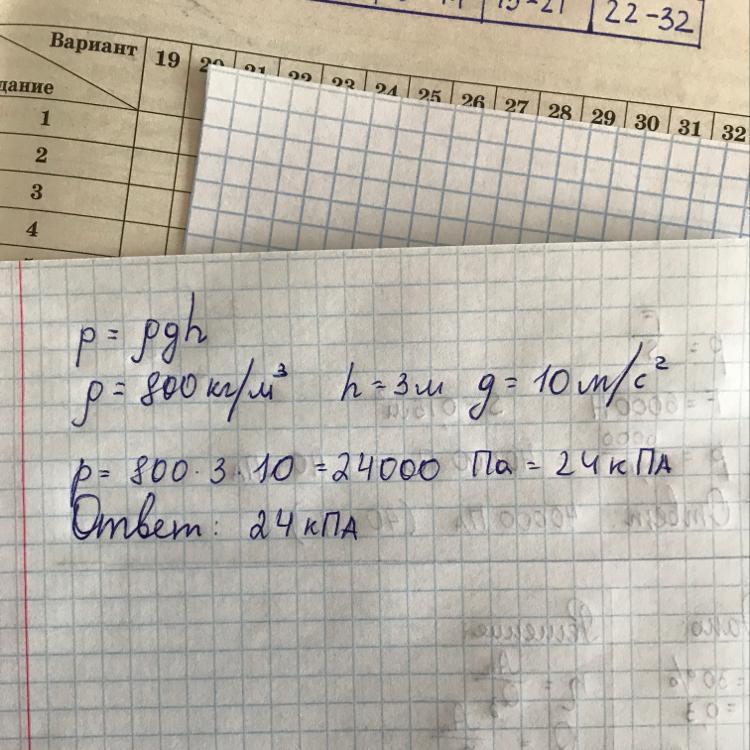 22-32
Вариант 19 20 21 22 23 24 25 26 27 28 29 30 31 32
1
2
3
4
p = ρgh
ρ = 800 кг/м³ h = 3м g = 10 м/с²
p = 800 · 3 · 10 = 24000 Па = 24 кПА
Ответ: 24 кПА